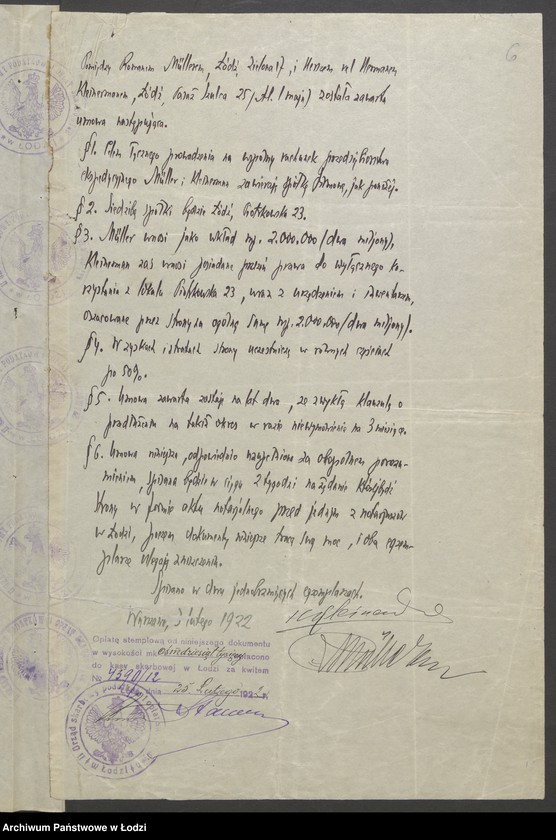 6
Pomiędzy Romanem Müllerem, Łódź, Zielona 17, i Herszem vel Hermanem
Kleinermanem, Łódź, Pasaż Szulca 25 /Al. 1 maja/ została zawarta
umowa następująca.
§ 1. Celem łącznego prowadzenia na wspólny rachunek przedsiębiorstwa
ekspedycyjnego Müller i Kleinerman zawierają spółkę firmową, jak poniżej.
§ 2. Siedzibą spółki będzie Łódź, Piotrkowska 23.
§ 3. Müller wnosi jako wkład mp. 2.000.000 /dwa miljony/,
Kleinerman zaś wnosi posiadane przezeń prawa do wyłącznego ko-
rzystania z lokalu Piotrkowska 23, wraz z urządzeniem i inwentarzem,
oszacowane przez strony na ogólną sumę mp. 2.000.000 /dwa miljony/.
§ 4. W zyskach i stratach strony uczestniczą w równych częściach
po 50%.
§ 5. Umowa zawarta zostaje na lat dwa, ze zwykłą klauzulą o
przedłużeniu na takiż okres w razie niewymówienia na 3 miesiące.
§ 6. Umowa niniejsza, odpowiednio uzupełniona za obopólnem porozu-
mieniem, spisana będzie w ciągu 2 tygodni na żądanie którejbądź
strony w formie aktu notarjalnego przed jednym z notarjuszów
w Łodzi, poczem dokumenty niniejsze tracą swą moc, i oba egzem-
plarze ulegają zniszczeniu.
Spisano w dwu jednobrzmiących egzemplarzach.
Warszawa, 3 lutego 1922
H Kleinerman
R Müller
Opłatę stemplową od niniejszego dokumentu
w wysokości mk. ośmdziesiąt tysięcy wpłacono
do kasy skarbowej w Łodzi za kwitem
№ 4390/12
dnia 25 Lutego 192
Archiwum Państwowe w Łodzi